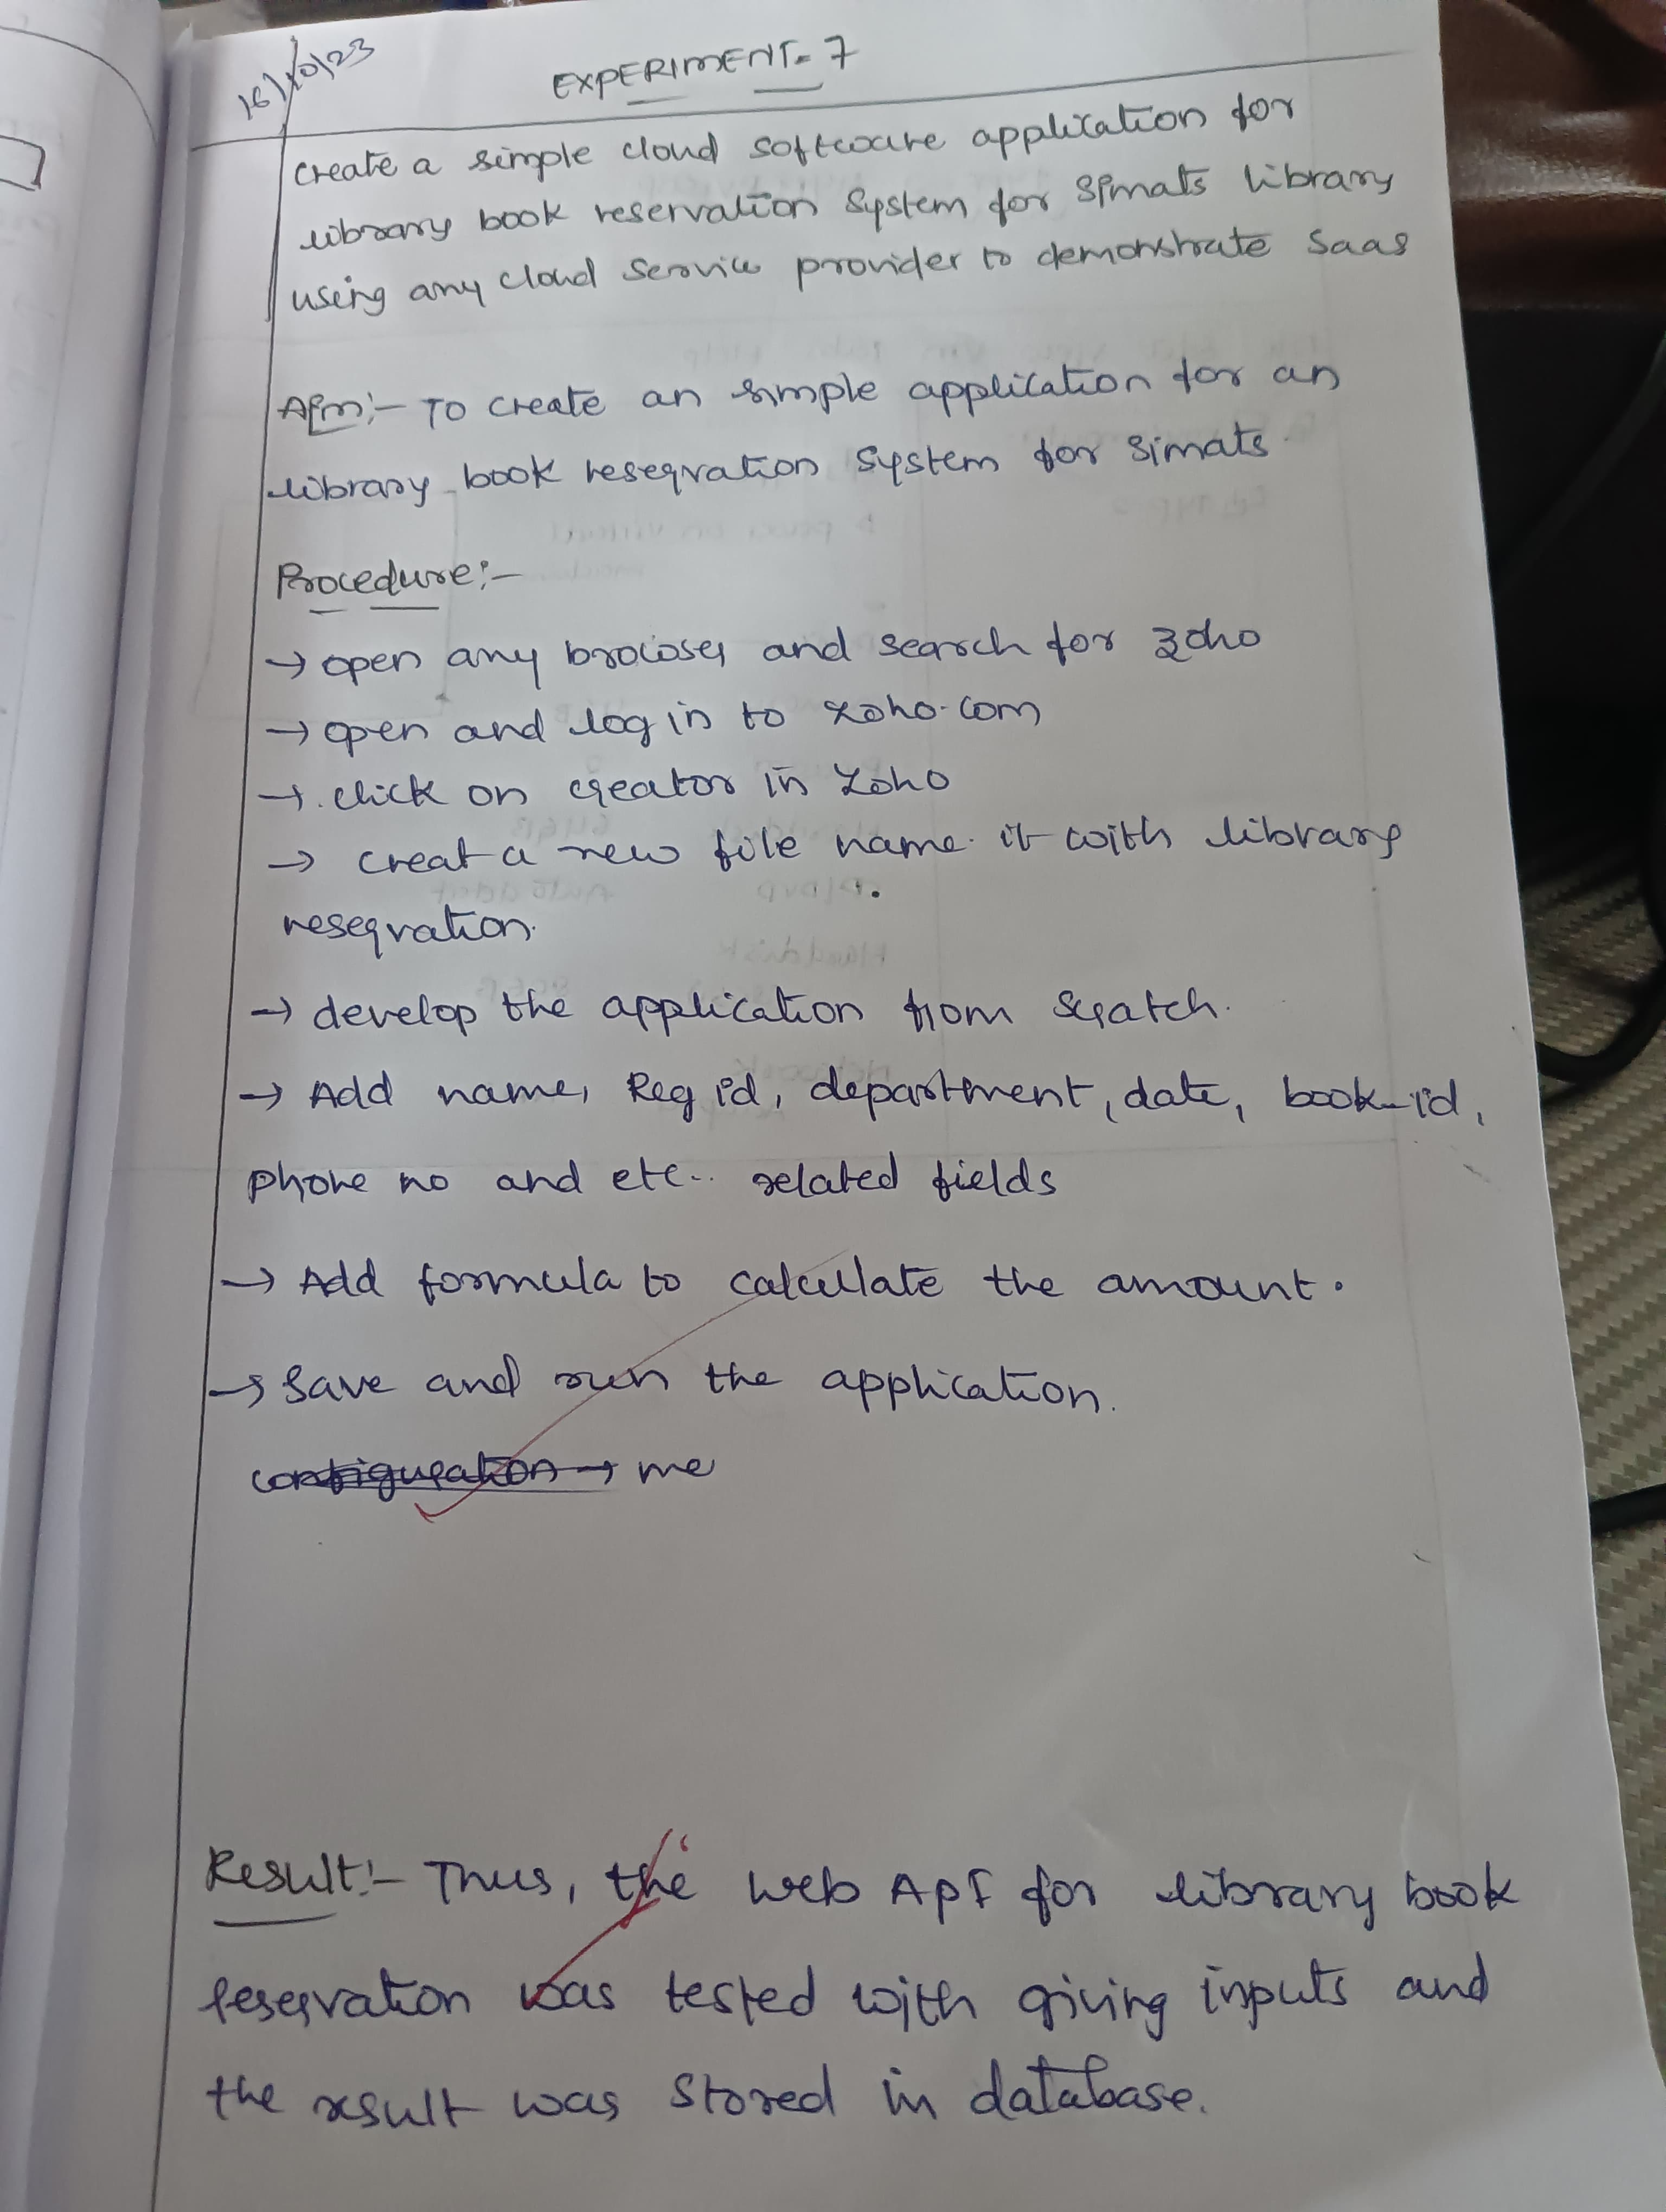 16/10/23
EXPERIMENT-7
create a simple cloud software application for
library book reservation System for Simats library
using any cloud Service provider to demonstrate Saas
Aim:- To create an simple application for an
library book reservation System for Simats.
Procedure:-
→ open any browser and search for zoho
→ open and log in to zoho.com
→ click on creator in Zoho
→ creat a new file name it with library
reservation.
→ develop the application from Scratch.
→ Add name, Reg id, department, date, book-id,
phone no and etc.. related fields
→ Add formula to calculate the amount.
→ Save and run the application.
configuration → me
Result:- Thus, the web API for library book
reservation was tested with giving inputs and
the result was Stored in database.